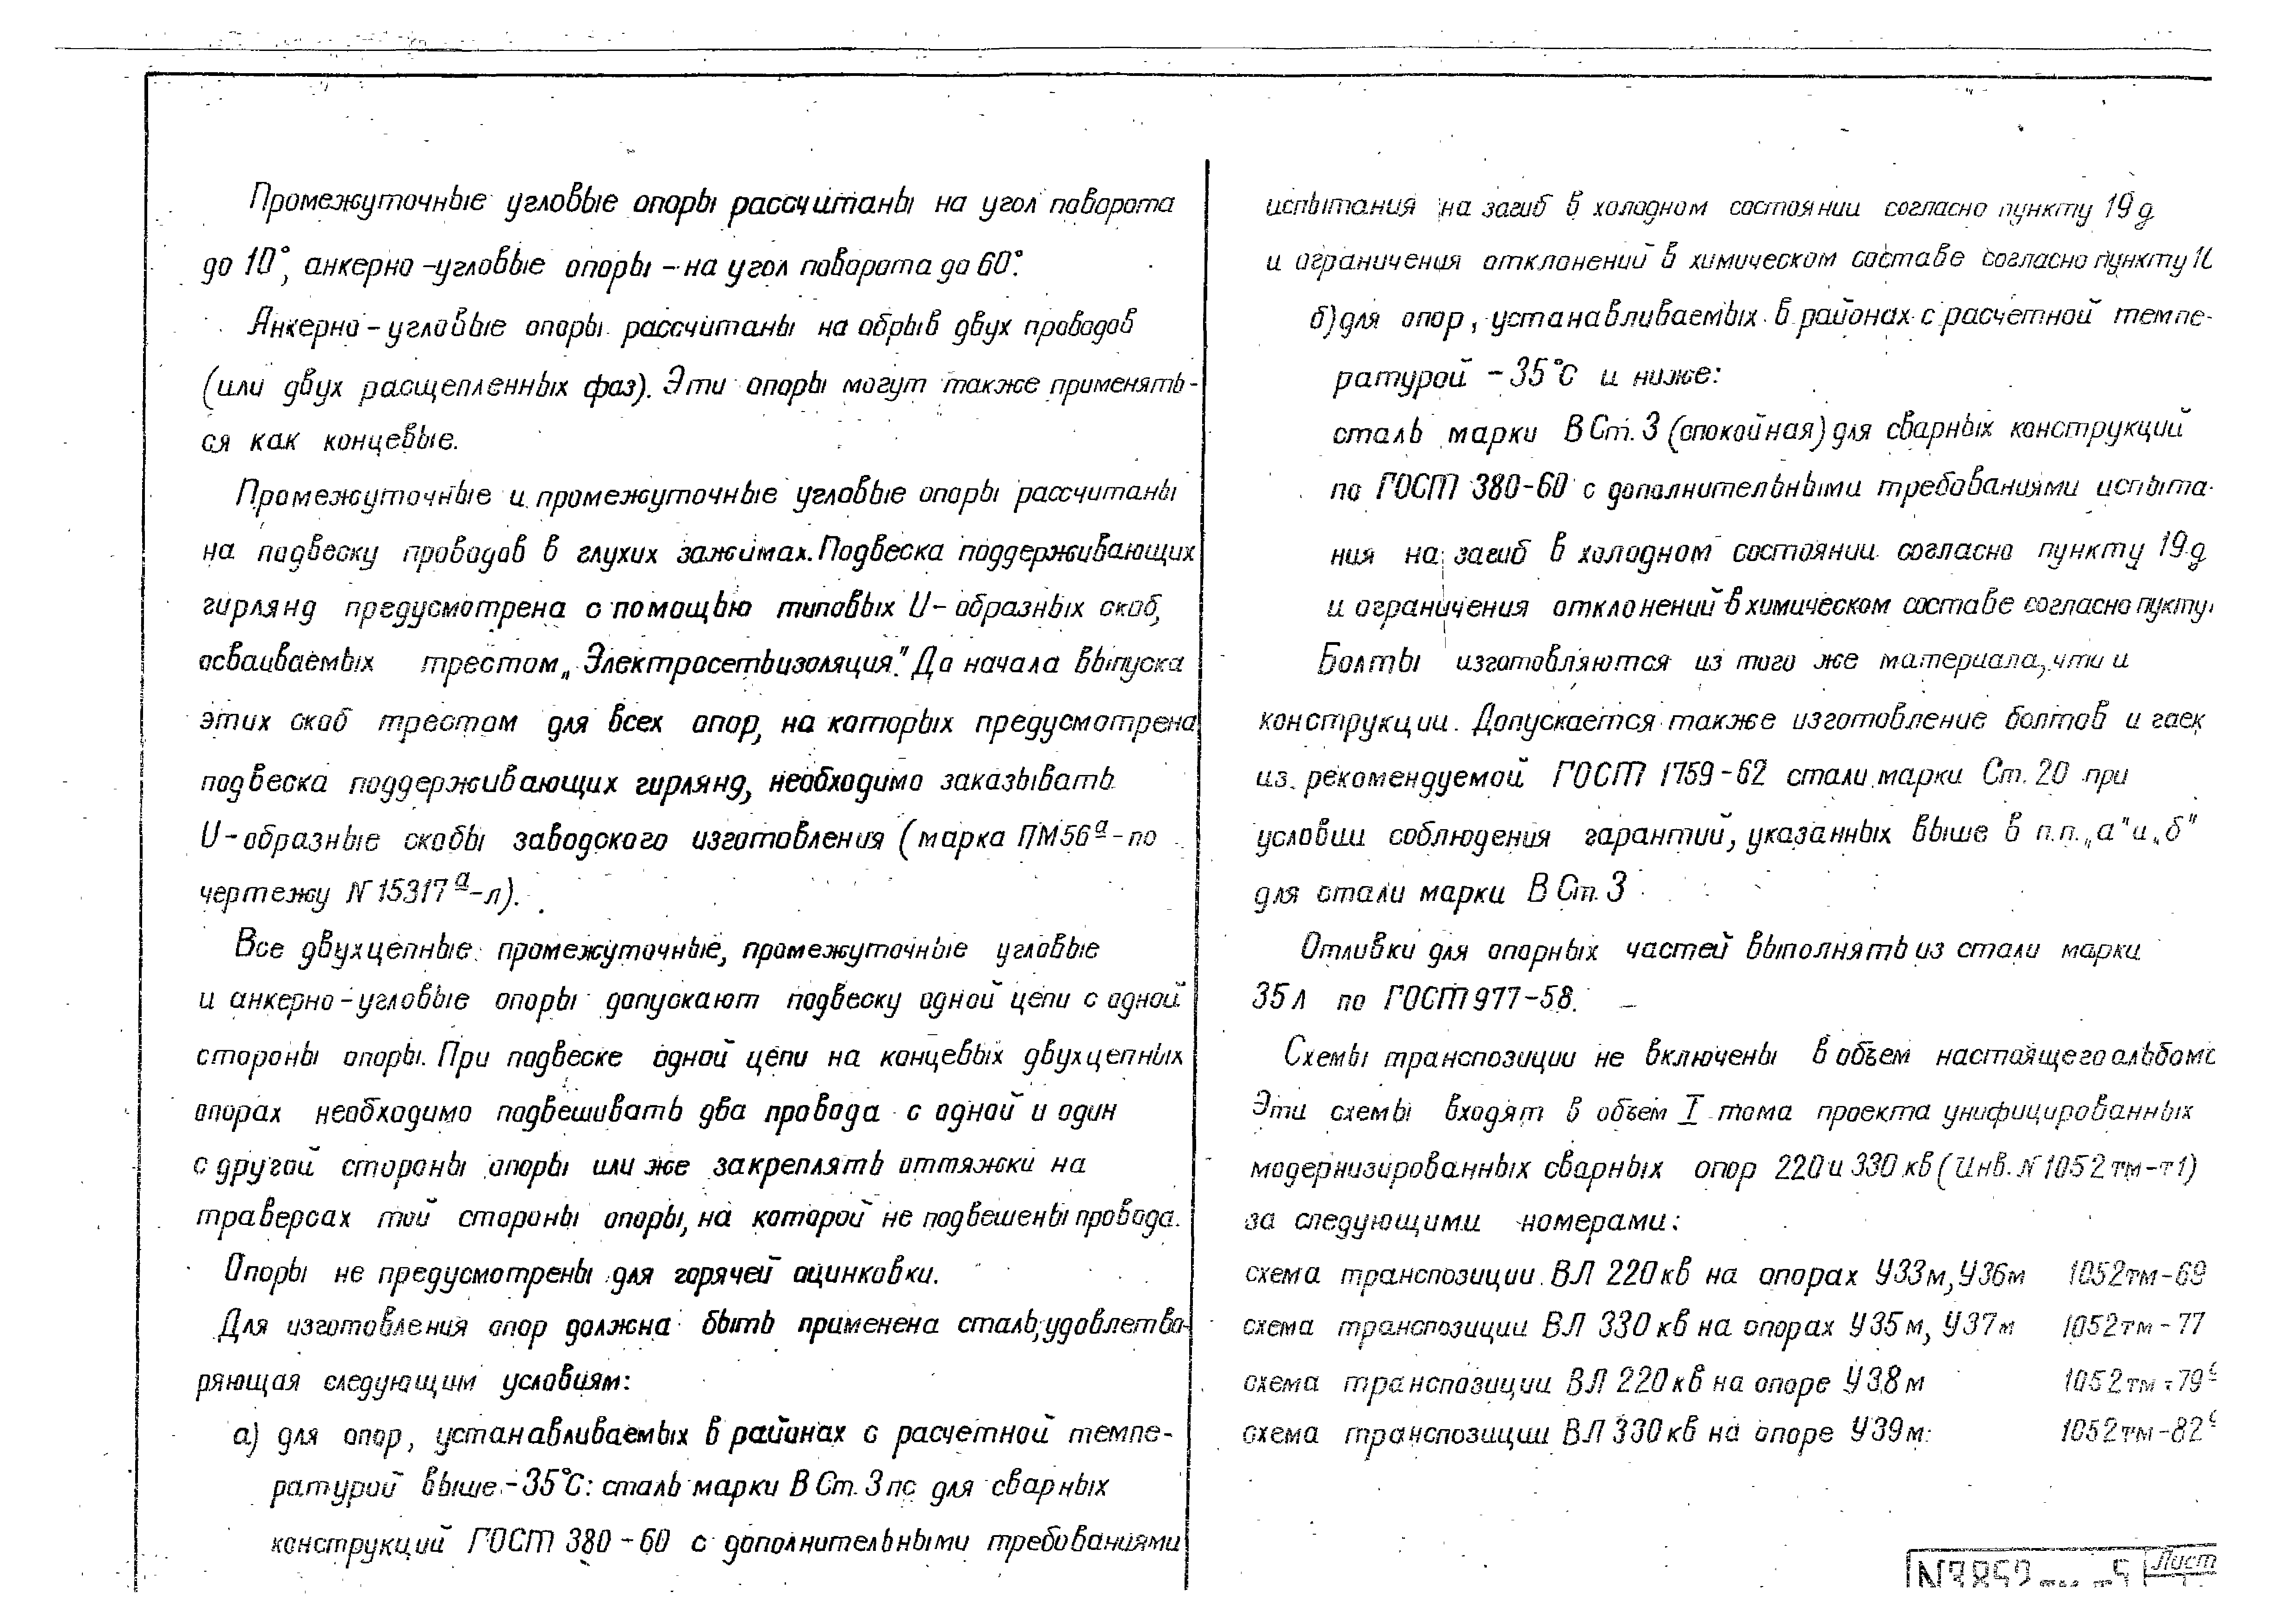 Промежуточные угловые опоры рассчитаны на угол поворота
до 10°, анкерно-угловые опоры - на угол поворота до 60°.
Анкерно-угловые опоры рассчитаны на обрыв двух проводов
(или двух расщепленных фаз). Эти опоры могут также применять-
ся как концевые.
Промежуточные и промежуточные угловые опоры рассчитаны
на подвеску проводов в глухих зажимах. Подвеска поддерживающих
гирлянд предусмотрена с помощью типовых U-образных скоб,
осваиваемых трестом „Электросетьизоляция". До начала выпуска
этих скоб трестом для всех опор, на которых предусмотрена
подвеска поддерживающих гирлянд, необходимо заказывать
U-образные скобы заводского изготовления (марка ПМ56а-по
чертежу N 15317а-л).
Все двухцепные промежуточные, промежуточные угловые
и анкерно-угловые опоры допускают подвеску одной цепи с одной
стороны опоры. При подвеске одной цепи на концевых двухцепных
опорах необходимо подвешивать два провода с одной и один
с другой стороны опоры или же закреплять оттяжки на
траверсах той стороны опоры, на которой не подвешены провода.
Опоры не предусмотрены для горячей оцинковки.
Для изготовления опор должна быть применена сталь, удовлетво-
ряющая следующим условиям:
а) для опор, устанавливаемых в районах с расчетной темпе-
ратурой выше -35°С: сталь марки В Ст. 3 пс для сварных
конструкций ГОСТ 380-60 с дополнительными требованиями
испытания на загиб в холодном состоянии согласно пункту 19 д
и ограничения отклонений в химическом составе согласно пункту
б) для опор, устанавливаемых в районах с расчетной темпе-
ратурой -35°С и ниже:
сталь марки В Ст. 3 (спокойная) для сварных конструкций
по ГОСТ 380-60 с дополнительными требованиями испыта-
ния на загиб в холодном состоянии согласно пункту 19 д
и ограничения отклонений в химическом составе согласно пукту
Болты изготовляются из того же материала, что и
конструкции. Допускается также изготовление болтов и гаек
из рекомендуемой ГОСТ 1759-62 стали марки Ст. 20 при
условии соблюдения гарантий, указанных выше в п.п. „а" и „б"
для стали марки В Ст. 3
Отливки для опорных частей выполнять из стали марки
35Л по ГОСТ 977-58.
Схемы транспозиции не включены в объем настоящего альбома
Эти схемы входят в объем I тома проекта унифицированных
модернизированных сварных опор 220 и 330 кв (Инв. N 1052тм-т1)
за следующими номерами:
схема транспозиции ВЛ 220кв на опорах У33м, У36м 1052тм-69
схема транспозиции ВЛ 330кв на опорах У35м, У37м 1052тм-77
схема транспозиции ВЛ 220кв на опоре У38м 1052тм-79
схема транспозиции ВЛ 330кв на опоре У39м 1052тм-82
Лист